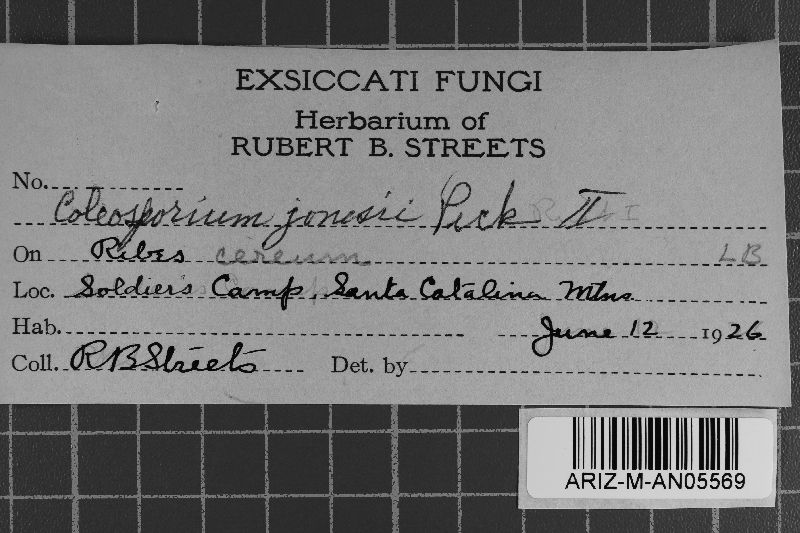 EXSICCATI FUNGI
Herbarium of
RUBERT B. STREETS
No.
Coleosporium jonesii Peck II I
On Ribes cereum LB
Loc. Soldier's Camp, Santa Catalina Mtns
Hab. June 12 1926
Coll. R B Streets Det. by
ARIZ-M-AN05569